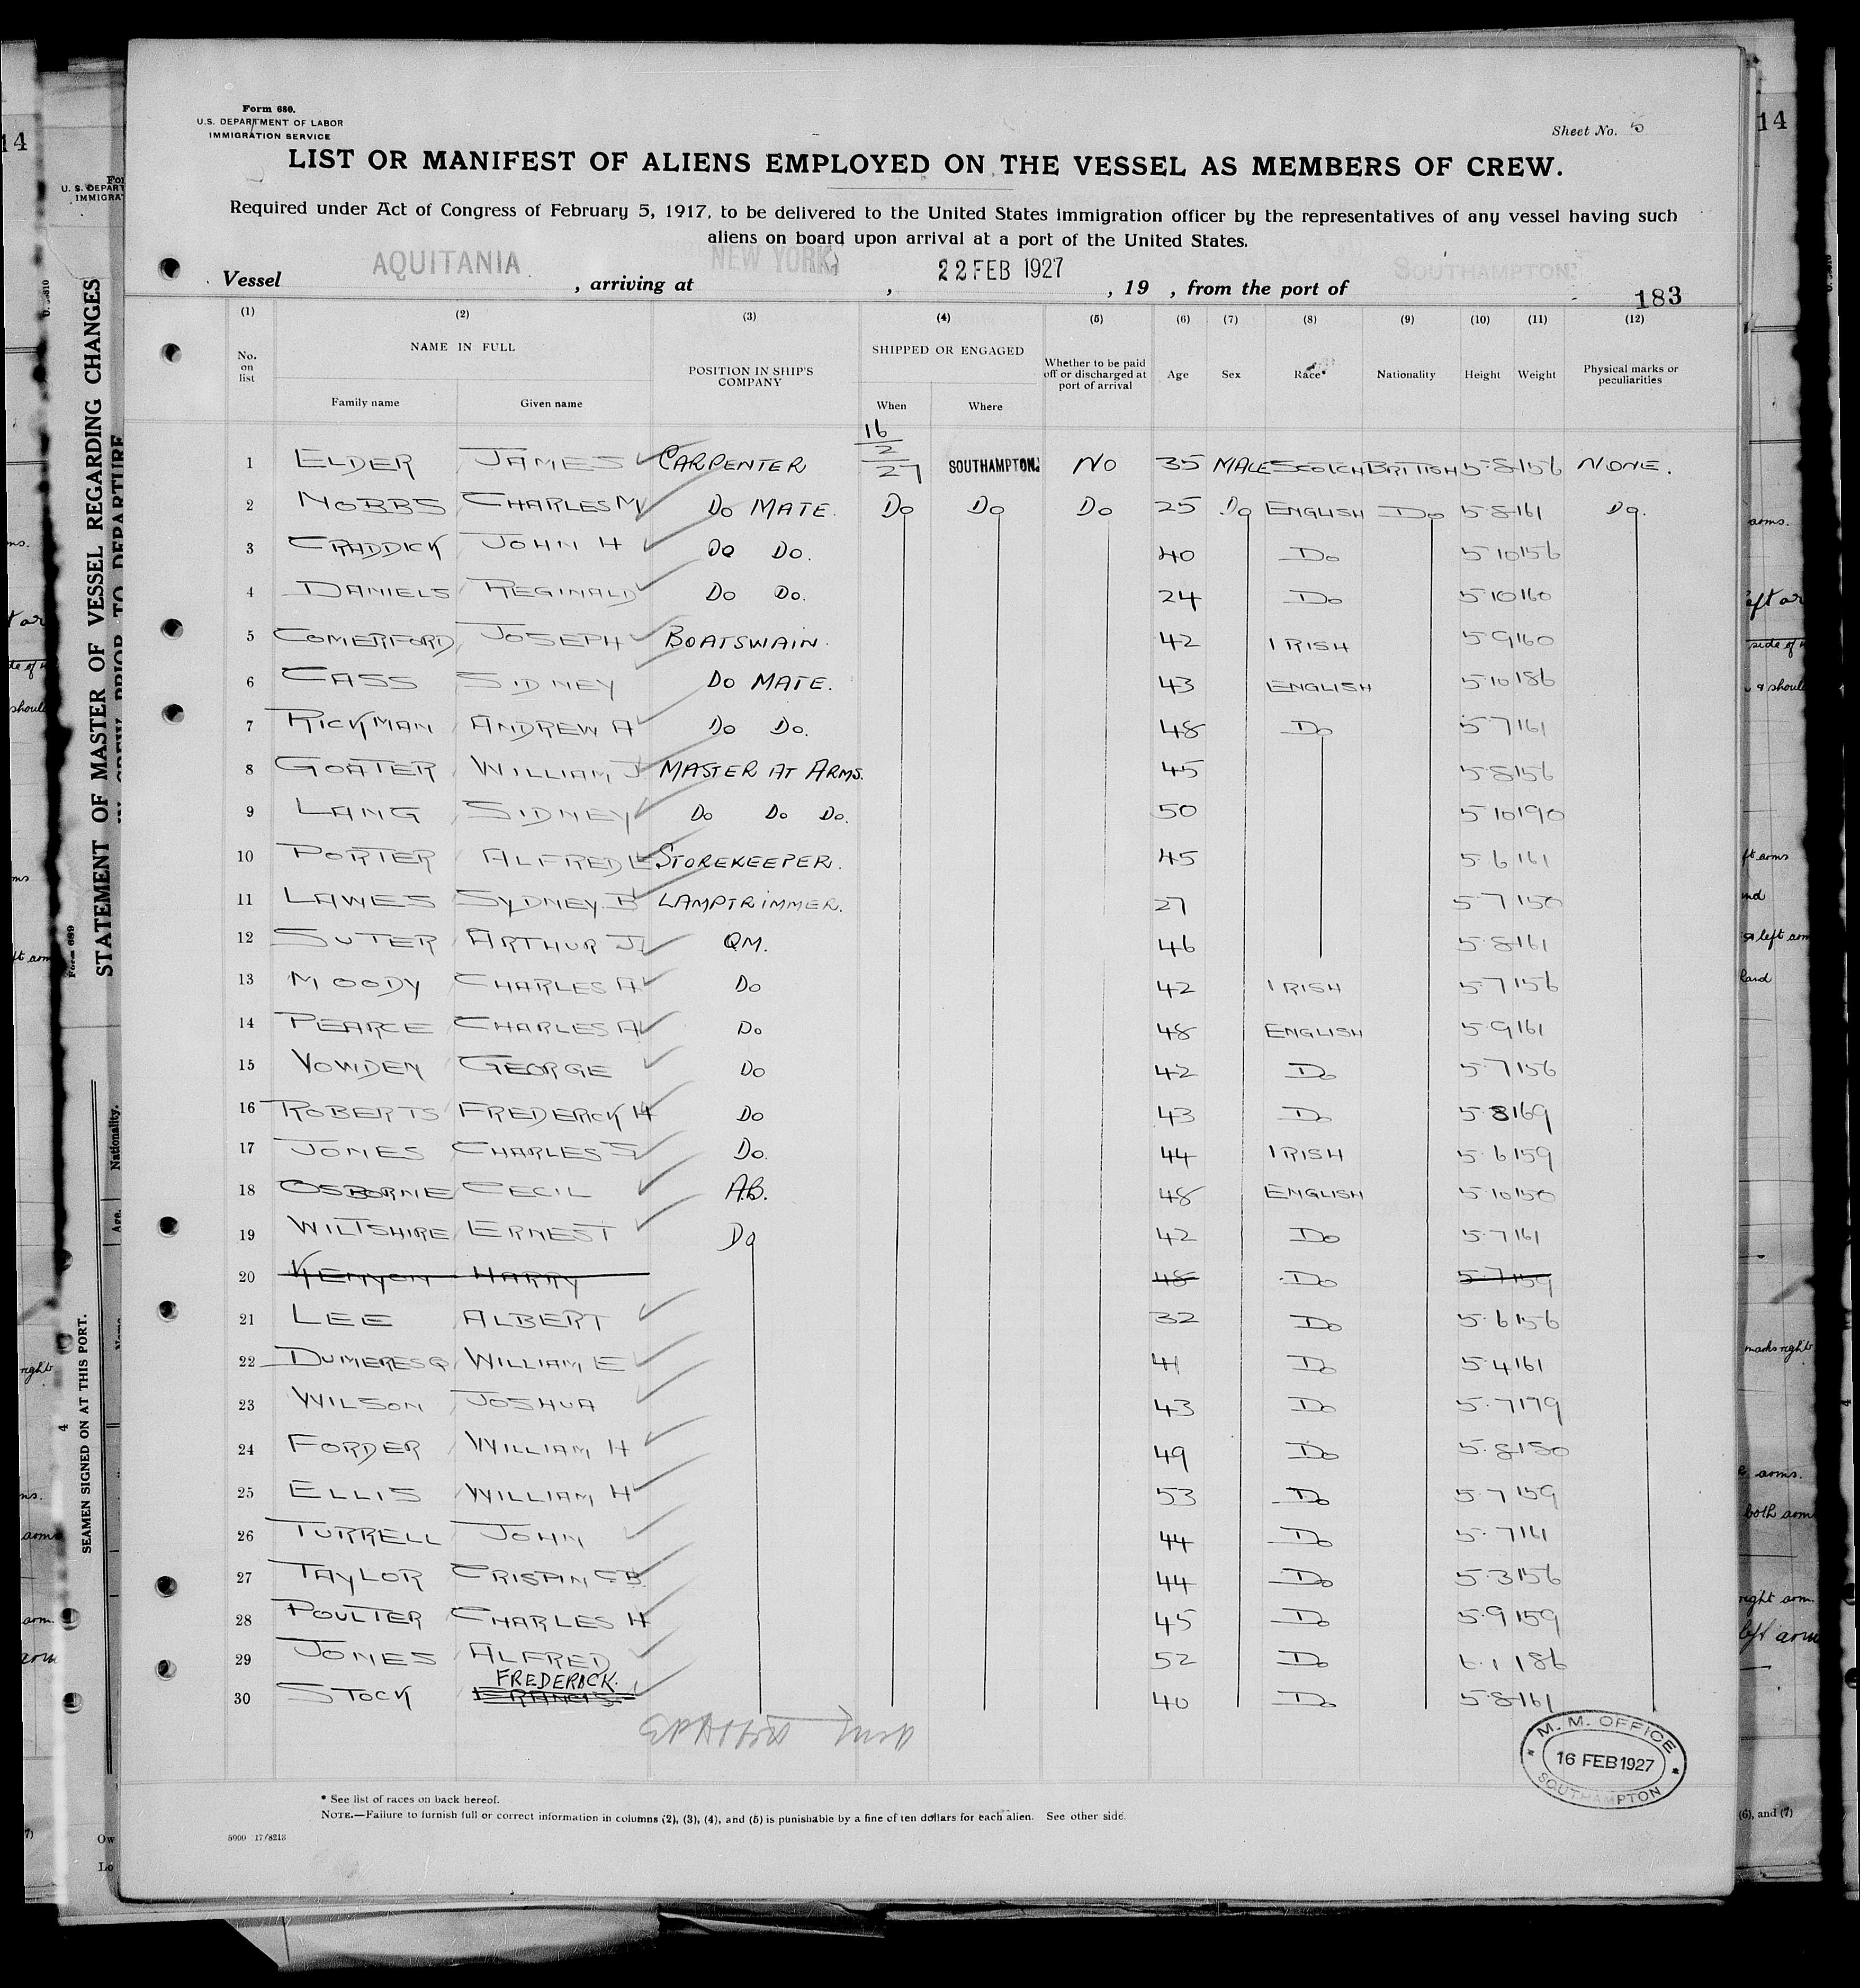 Form 680.
U.S. DEPARTMENT OF LABOR
IMMIGRATION SERVICE
Sheet No. 5
LIST OR MANIFEST OF ALIENS EMPLOYED ON THE VESSEL AS MEMBERS OF CREW.
Required under Act of Congress of February 5, 1917, to be delivered to the United States immigration officer by the representatives of any vessel having such
aliens on board upon arrival at a port of the United States.
Vessel AQUITANIA, arriving at NEW YORK, 22 FEB 1927, 19 , from the port of SOUTHAMPTON.
183
(1) (2) (3) (4) (5) (6) (7) (8) (9) (10) (11) (12)
No. on list NAME IN FULL Family name Given name POSITION IN SHIP'S COMPANY SHIPPED OR ENGAGED When Where Whether to be paid off or discharged at port of arrival Age Sex Race* Nationality Height Weight Physical marks or peculiarities
1 ELDER JAMES CARPENTER 16/2/27 SOUTHAMPTON. NO 35 MALE SCOTCH BRITISH 5-8 156 NONE.
2 NOBBS CHARLES M Do MATE. Do Do Do 25 Do ENGLISH Do 5-8 161 Do.
3 CRADDICK JOHN H Do Do. 40 Do 5-10 156
4 DANIELS REGINALD Do Do. 24 Do 5-10 160
5 COMERFORD JOSEPH BOATSWAIN. 42 IRISH 5-9 160
6 CASS SIDNEY Do MATE. 43 ENGLISH 5-10 186
7 RICKMAN ANDREW A Do Do. 48 Do 5-7 161
8 GOATER WILLIAM J MASTER AT ARMS. 45 5-8 156
9 LANG SIDNEY Do Do Do. 50 5-10 190
10 PORTER ALFRED L STOREKEEPER. 45 5-6 161
11 LAWES SYDNEY. B LAMPTRIMMER. 27 5-7 150
12 SUTER ARTHUR J. QM. 46 5-8 161
13 MOODY CHARLES A Do 42 IRISH 5-7 156
14 PEARCE CHARLES A Do 48 ENGLISH 5-9 161
15 VOWDEN GEORGE Do 42 Do 5-7 156
16 ROBERTS FREDERICK H Do 43 Do 5-8 169
17 JONES CHARLES S Do. 44 IRISH 5-6 159
18 OSBORNE CECIL A.B. 48 ENGLISH 5-10 150
19 WILTSHIRE ERNEST Do 42 Do 5-7 161
20 KENYON HARRY 48 Do 5-7 159
21 LEE ALBERT 32 Do 5-6 156
22 DUMERESQ WILLIAM E 41 Do 5-4 161
23 WILSON JOSHUA 43 Do 5-7 179
24 FORDER WILLIAM H 49 Do 5-8 150
25 ELLIS WILLIAM H 53 Do 5-7 159
26 TURRELL JOHN 44 Do 5-7 161
27 TAYLOR CRISPIN C.B. 44 Do 5-3 156
28 POULTER CHARLES H 45 Do 5-9 159
29 JONES ALFRED 52 Do 6-1 186
FREDERICK.
30 STOCK FRANCIS 40 Do 5-8 161
M. M. OFFICE
16 FEB 1927
SOUTHAMPTON
* See list of races on back hereof.
NOTE.—Failure to furnish full or correct information in columns (2), (3), (4), and (5) is punishable by a fine of ten dollars for each alien. See other side.
5000 17/8213
14
U. S. DEPART
IMMIGRA
STATEMENT OF MASTER OF VESSEL REGARDING CHANGES
IN CREW PRIOR TO DEPARTURE
Form 689
Nationality.
Age.
SEAMEN SIGNED ON AT THIS PORT.
4
14
arms.
side of
left arm
hand
marks right
both arm
right arm.
left arm
(6), and (7)